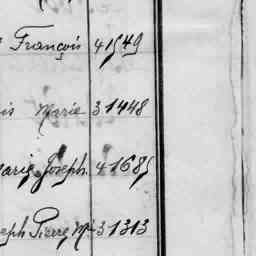 François 4 1549
is Marie 3 1448
Marie Joseph 4 1685
seph Pierre Mie 3 1313